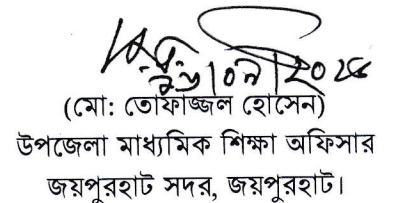 (মো: তোফাজ্জল হোসেন)
উপজেলা মাধ্যমিক শিক্ষা অফিসার
জয়পুরহাট সদর, জয়পুরহাট।